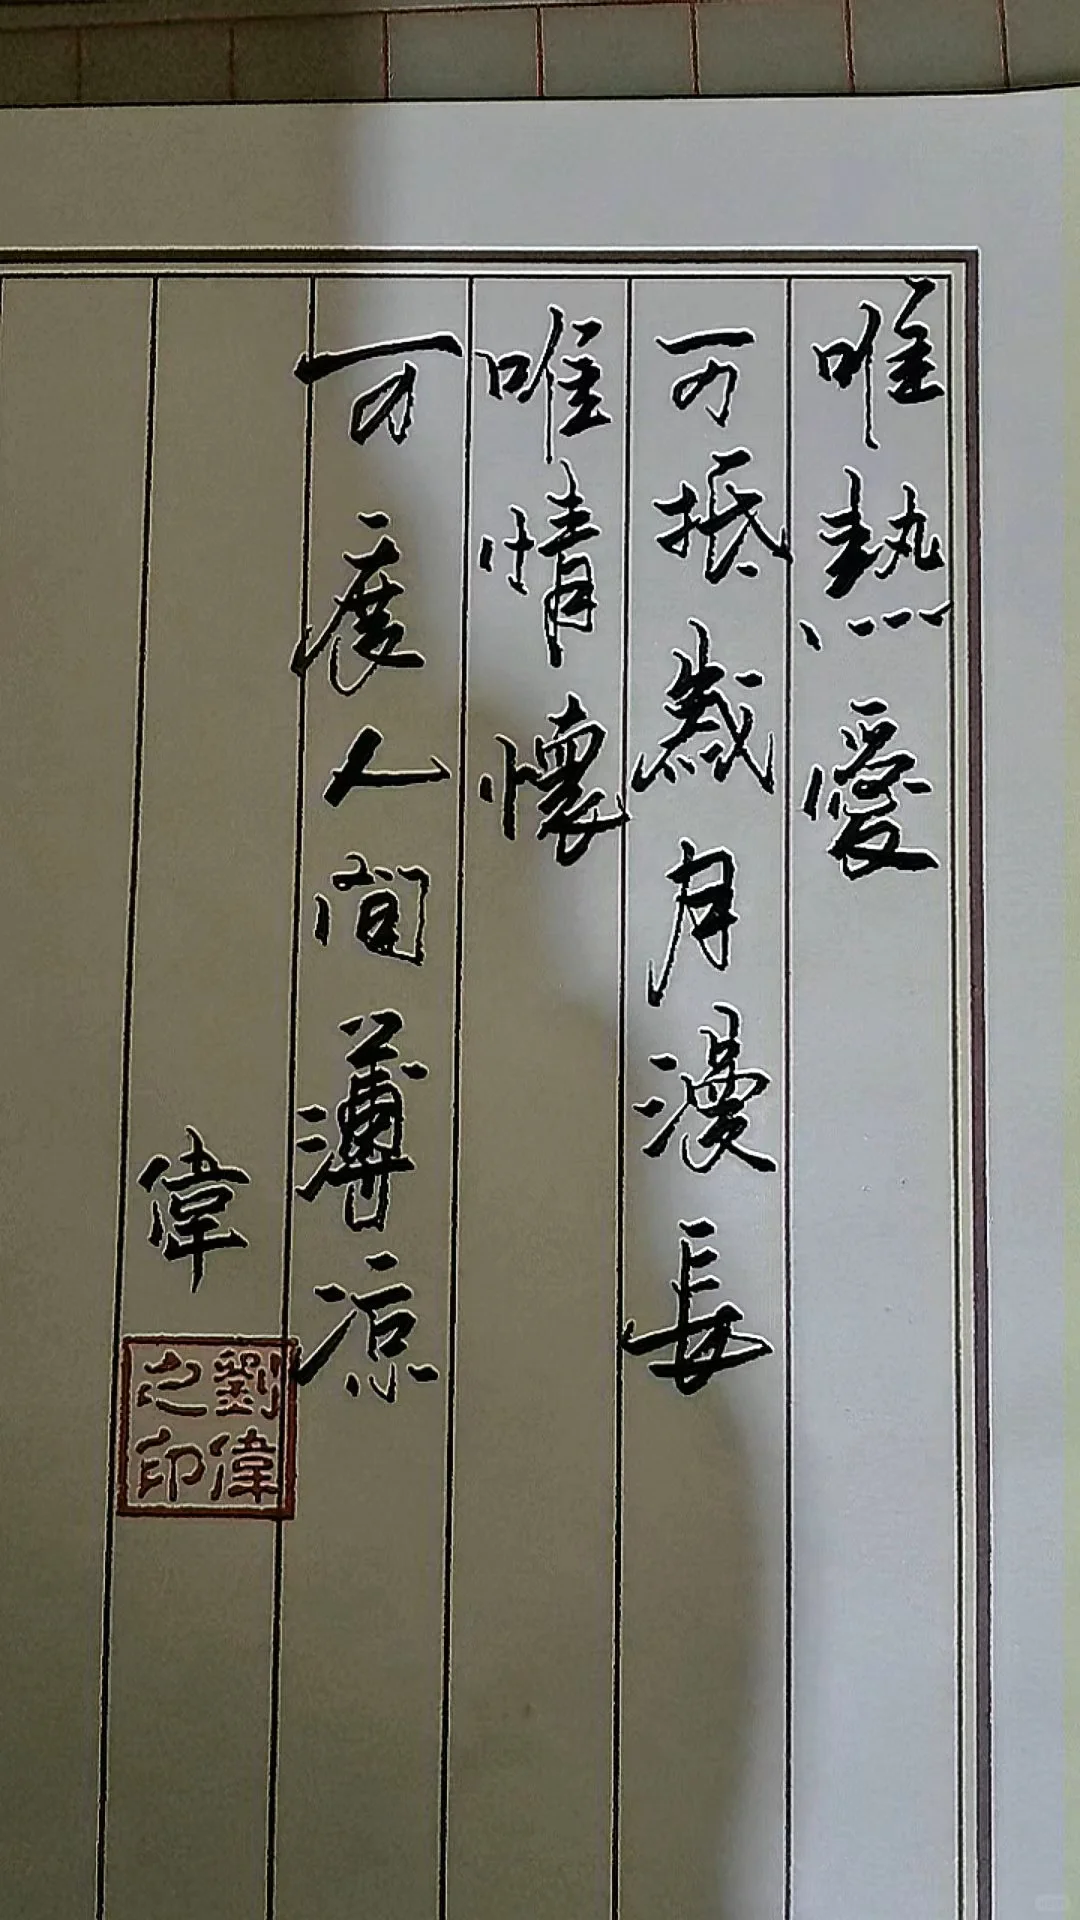 唯熱愛
可抵歲月漫長
唯情懷
可度人间薄凉
偉
劉偉之印